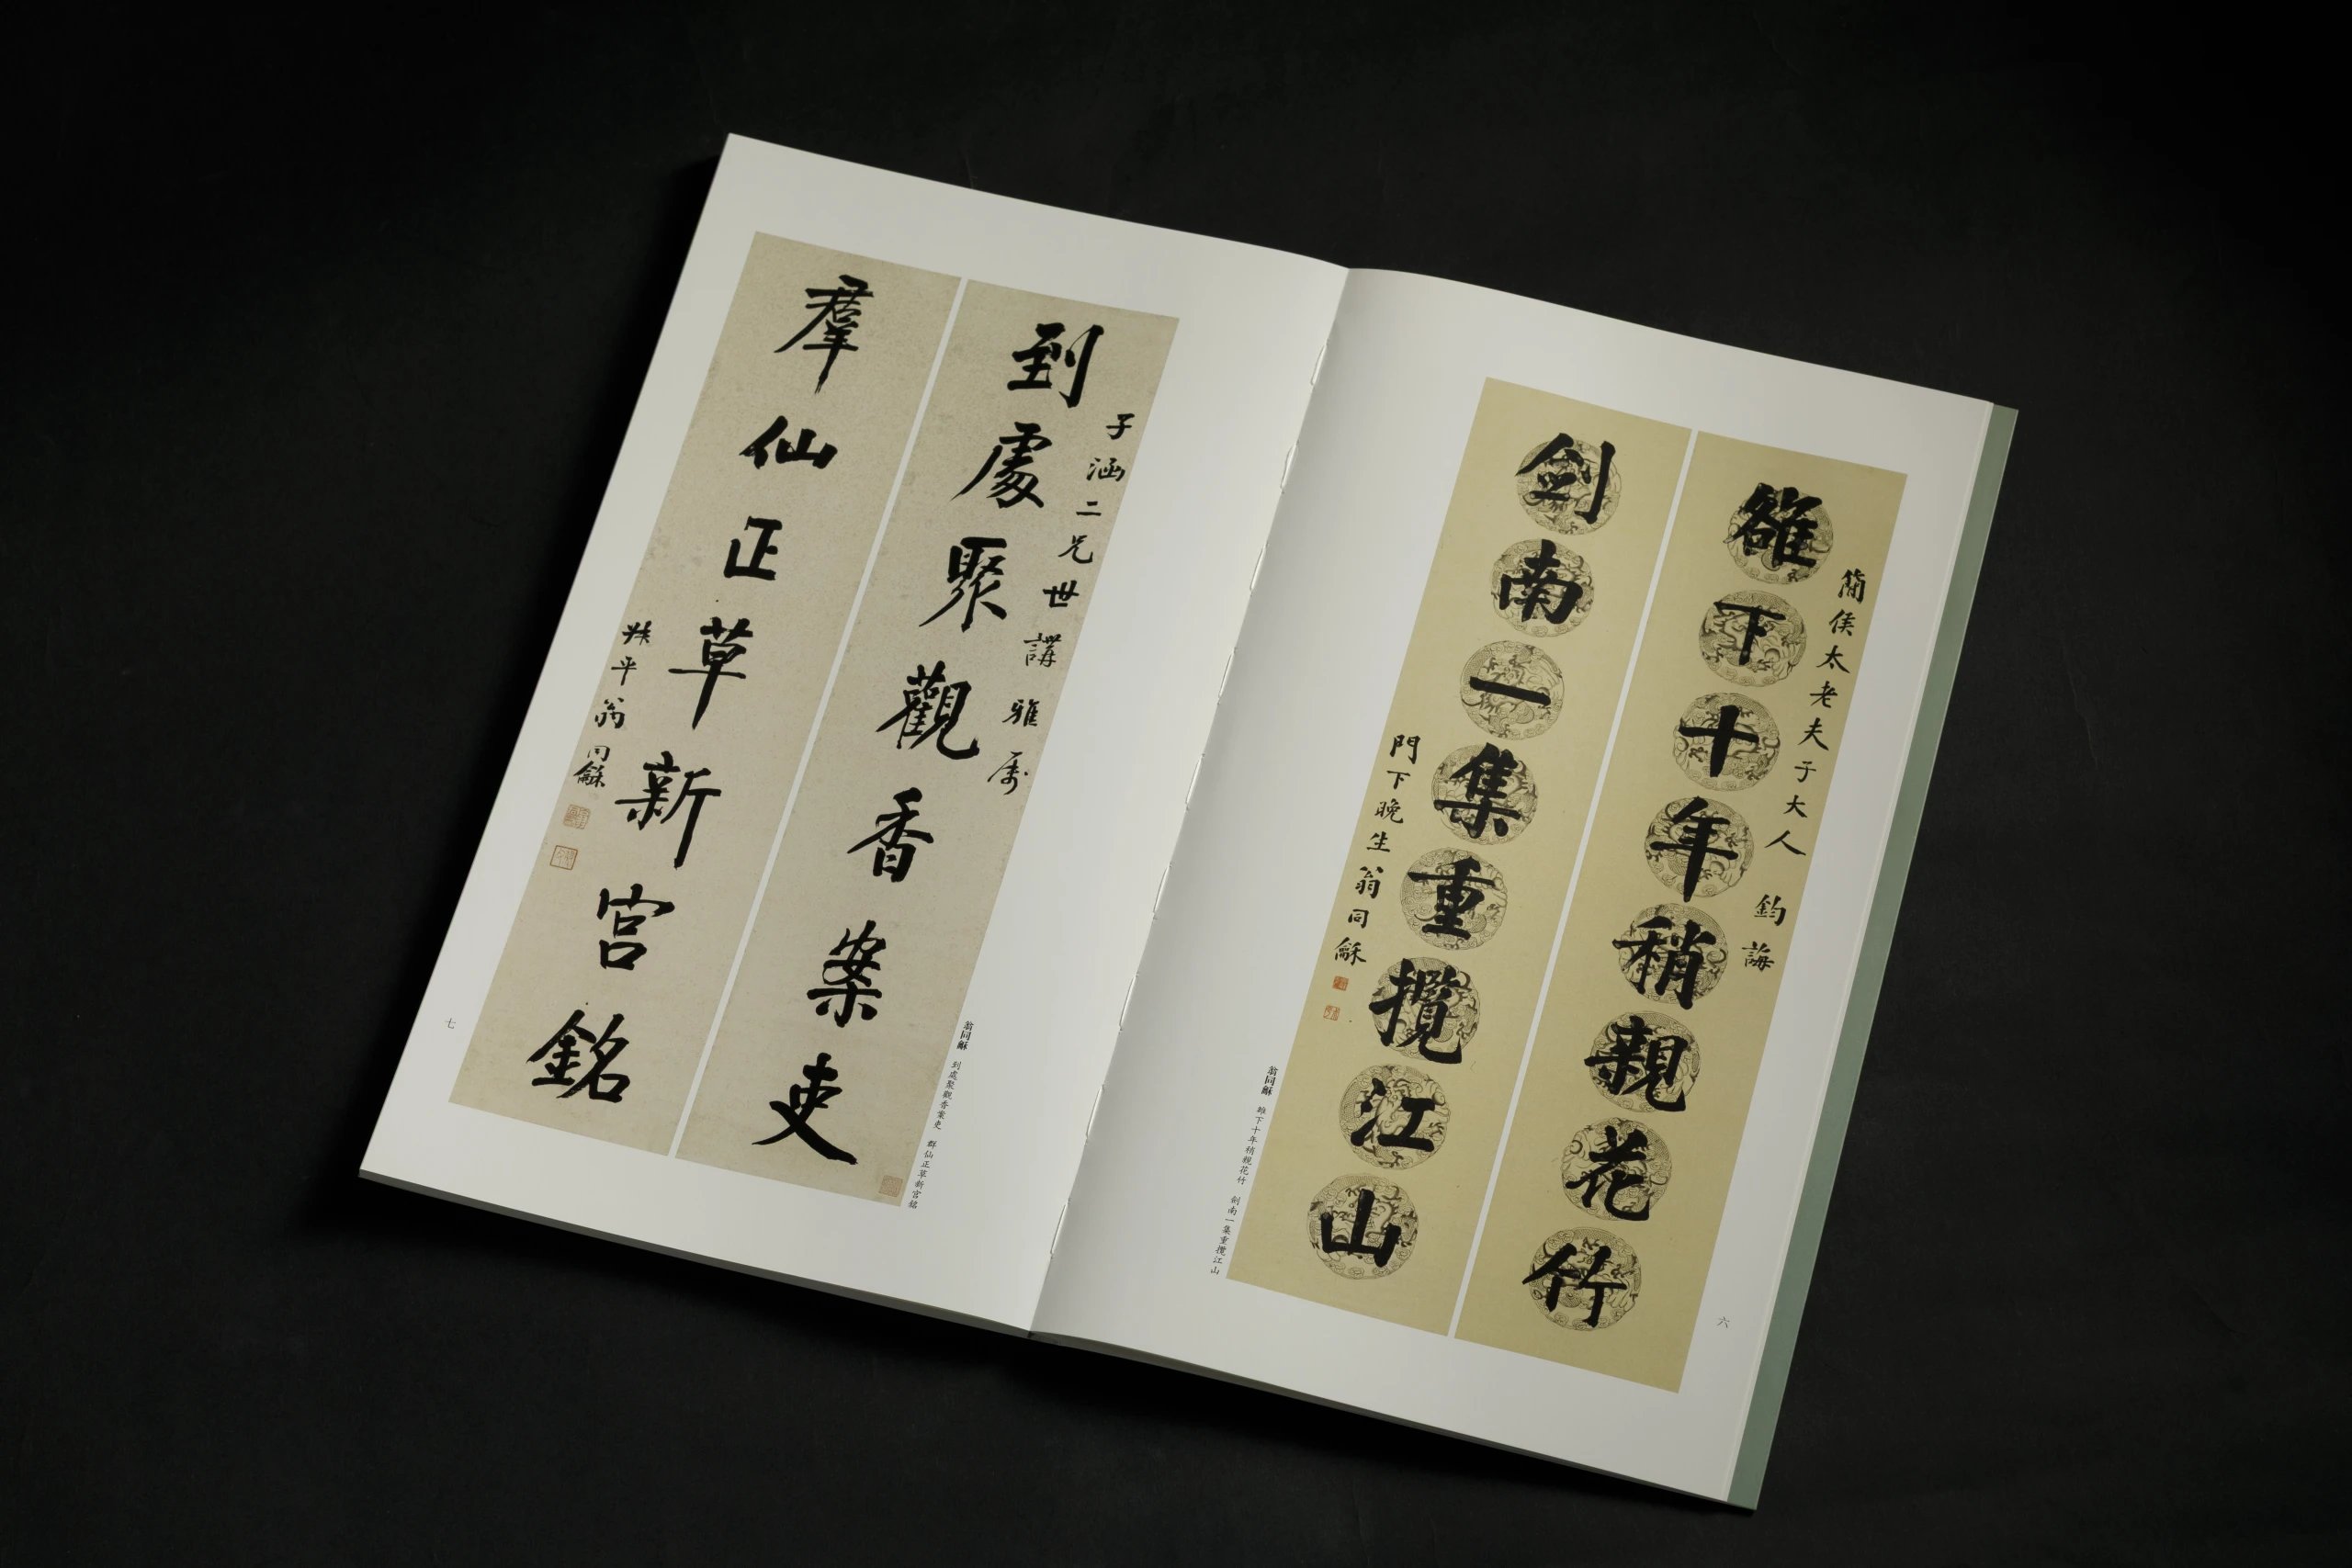 六
簡侯太老夫子大人 鈞誨
雒下十年稍親花竹
劍南一集重攬江山
門下晚生翁同龢
翁同龢 雒下十年稍親花竹 劍南一集重攬江山
子涵二兄世講雅属
到處聚觀香案吏
羣仙正草新宮銘
叔平翁同龢
翁同龢 到處聚觀香案吏 群仙正草新宮銘
七